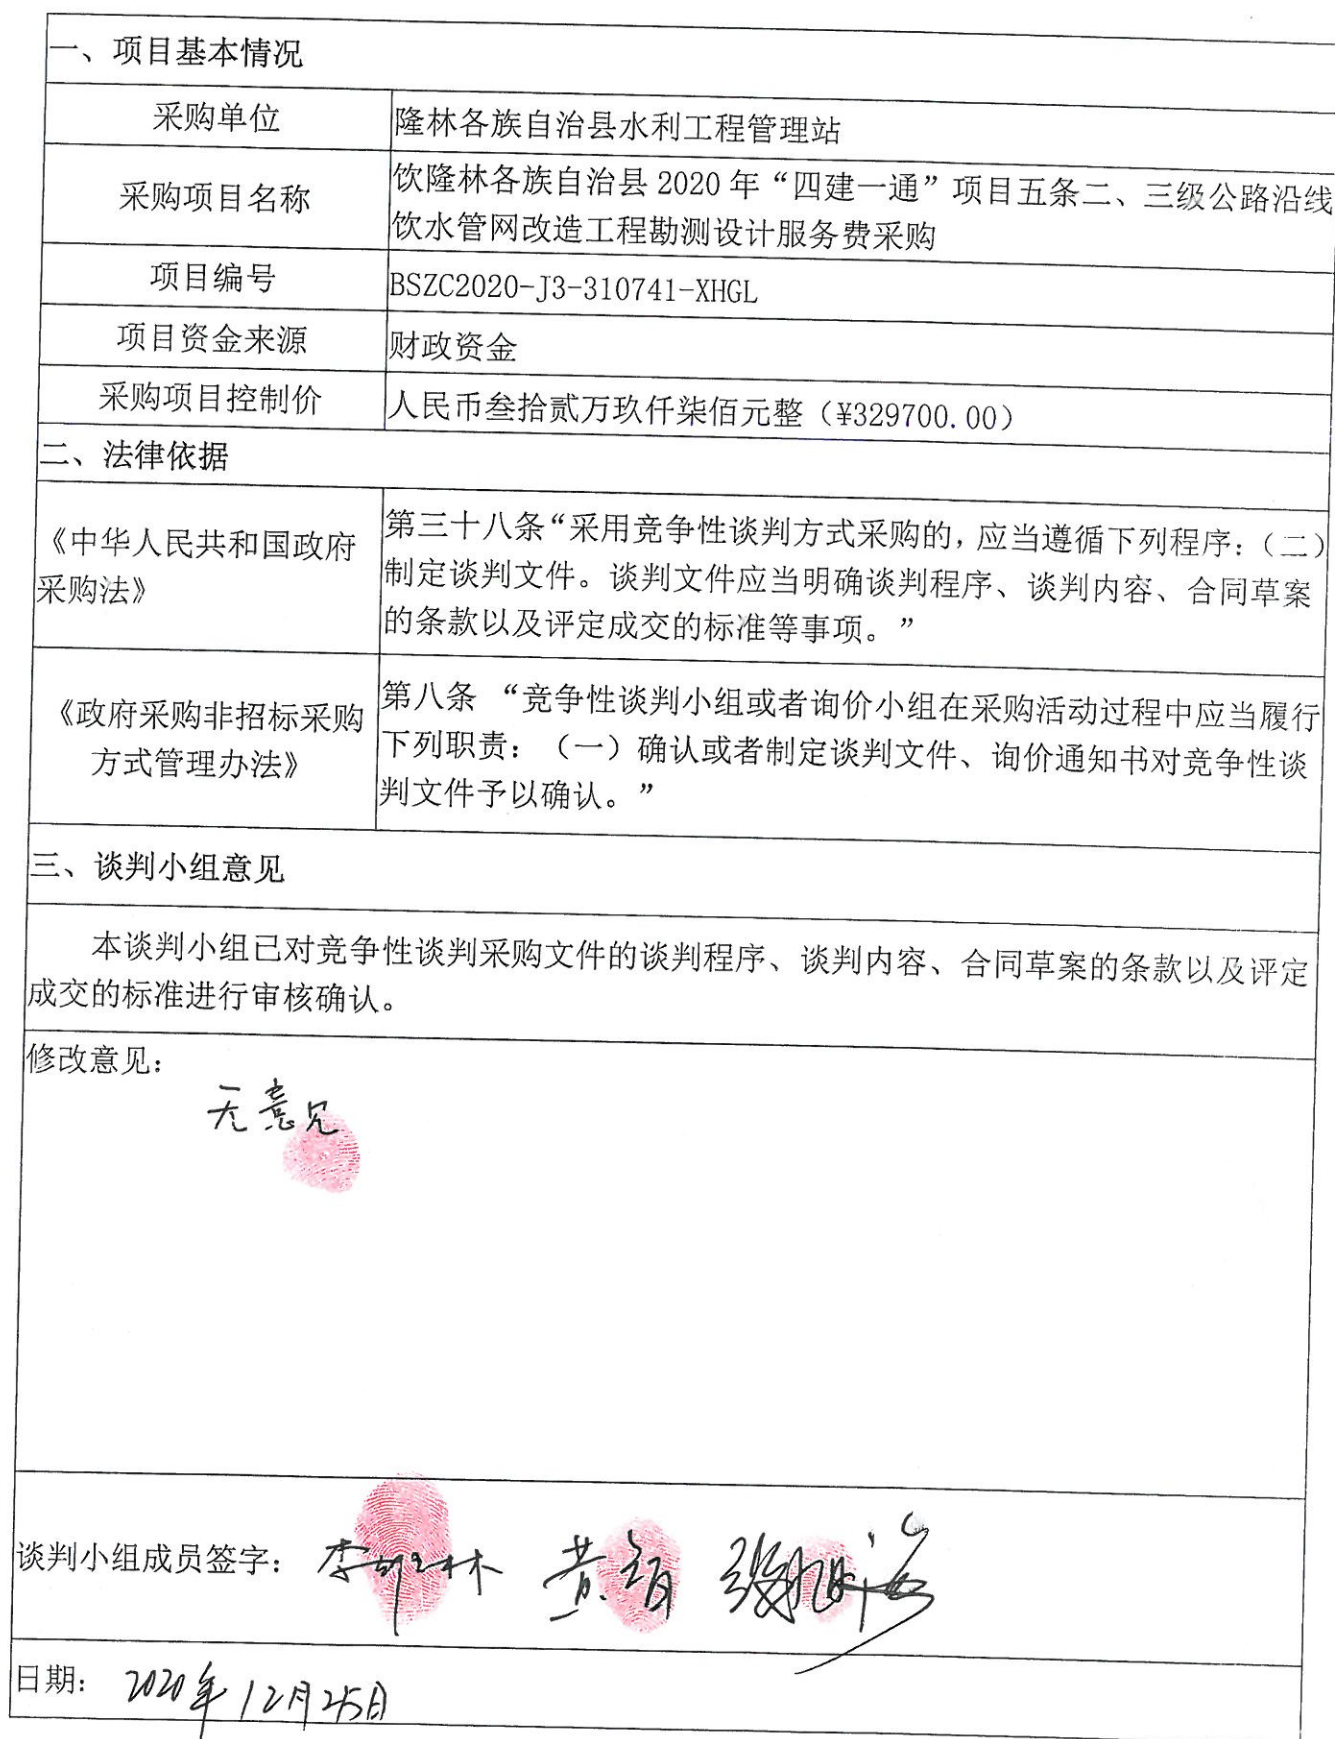 一、项目基本情况
采购单位
隆林各族自治县水利工程管理站
采购项目名称
饮隆林各族自治县 2020 年“四建一通”项目五条二、三级公路沿线
饮水管网改造工程勘测设计服务费采购
项目编号
BSZC2020-J3-310741-XHGL
项目资金来源
财政资金
采购项目控制价
人民币叁拾贰万玖仟柒佰元整（¥329700.00）
二、法律依据
《中华人民共和国政府
采购法》
第三十八条“采用竞争性谈判方式采购的，应当遵循下列程序：（二）
制定谈判文件。谈判文件应当明确谈判程序、谈判内容、合同草案
的条款以及评定成交的标准等事项。”
《政府采购非招标采购
方式管理办法》
第八条 “竞争性谈判小组或者询价小组在采购活动过程中应当履行
下列职责：（一）确认或者制定谈判文件、询价通知书对竞争性谈
判文件予以确认。”
三、谈判小组意见
本谈判小组已对竞争性谈判采购文件的谈判程序、谈判内容、合同草案的条款以及评定
成交的标准进行审核确认。
修改意见：
无意见
谈判小组成员签字：
日期： 2020年12月25日